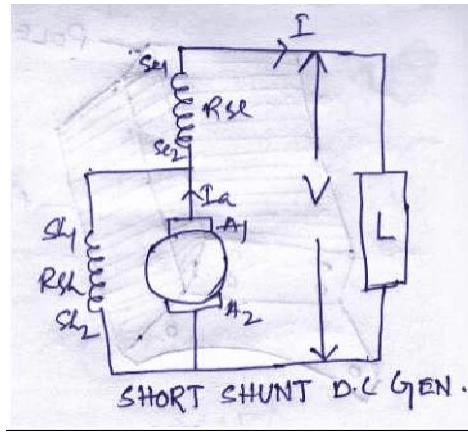 I
Se1
Rse
Se2
Ia
A1
V
L
Sh1
Rsh
Sh2
A2
SHORT SHUNT D.C GEN.